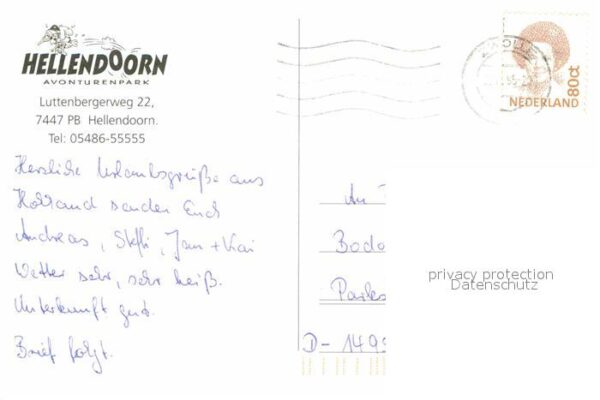 HELLENDOORN
AVONTURENPARK
Luttenbergerweg 22,
7447 PB Hellendoorn.
Tel: 05486-55555
Herzliche Urlaubsgrüße aus
Holland senden Euch
Andreas, Steffi, Jan + Kai
Wetter sehr, sehr heiß.
Unterkunft gut.
Brief folgt.
ZWOLLE
80ct
NEDERLAND
An
Bodo
Parks
D-149
privacy protection
Datenschutz